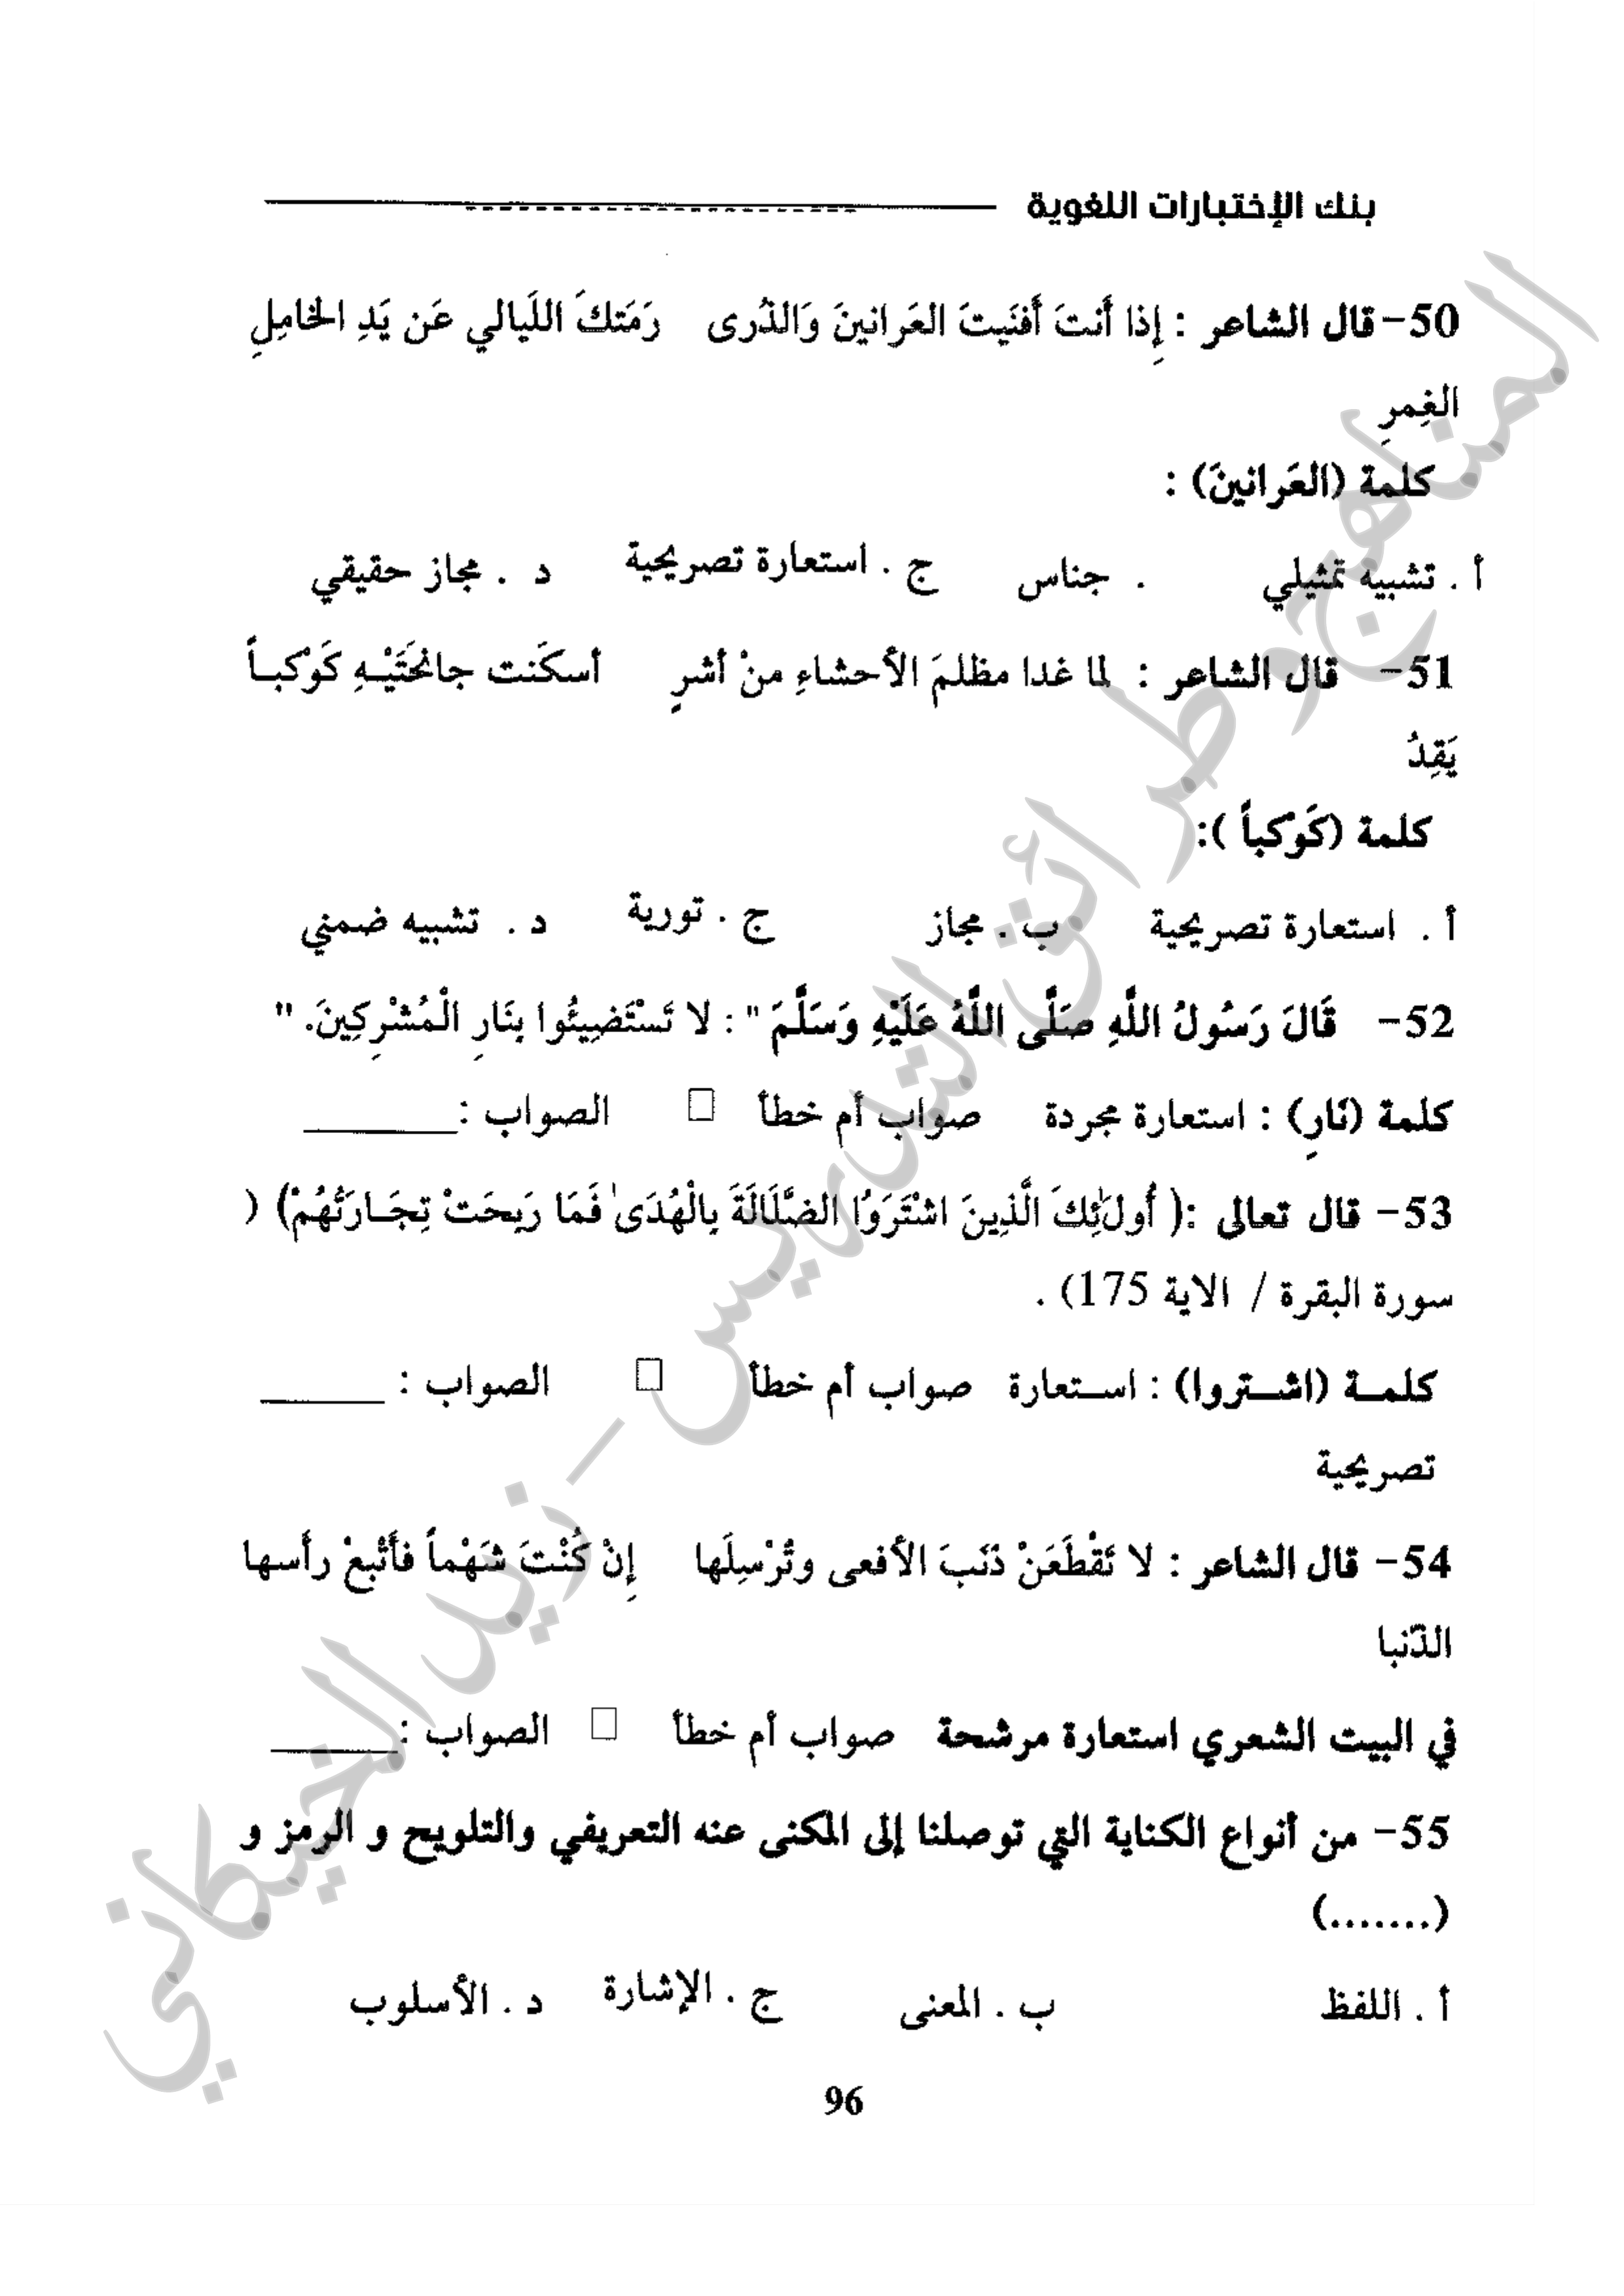 بنك الإختبارات اللغوية
50- قال الشاعر : إِذا أَنتَ أَفنَيتَ العَرانينَ وَالذُرى رَمَتكَ اللَيالي عَن يَدِ الخامِلِ
الغِمرِ
كلمة (العَرانينَ) :
أ . تشبيه تمثيلي . جناس ج . استعارة تصريحية د . مجاز حقيقي
51- قال الشاعر : لما غدا مظلمَ الأحشاءِ منْ أشرٍ أسكَنت جانحَتَيْـهِ كَوْكبـاً
يَقِدُ
كلمة (كَوكباً ):
أ . استعارة تصريحية ب . مجاز ج . تورية د . تشبيه ضمني
52- قَالَ رَسُولُ اللَّهِ صَلَّى اللَّهُ عَلَيْهِ وَسَلَّمَ " : لا تَسْتَضِيئُوا بِنَارِ الْمُشْرِكِينَ. "
كلمة (نَارِ) : استعارة مجردة صواب أم خطأ □ الصواب :______
53- قال تعالى :( أُولَٰئِكَ الَّذِينَ اشْتَرَوُا الضَّلَالَةَ بِالْهُدَىٰ فَمَا رَبِحَتْ تِجَـارَتُهُمْ) (
سورة البقرة / الاية 175) .
كلمـة (اشـتروا) : اسـتعارة صواب أم خطأ □ الصواب : ______
تصريحية
54- قال الشاعر : لا تَقْطَعَنْ ذَنَبَ الأفعى وتُرْسِلَها إِنْ كُنْتَ شَهْماً فأَتْبِعْ رأسها
الذّنبا
في البيت الشعري استعارة مرشحة صواب أم خطأ □ الصواب :______
55- من أنواع الكناية التي توصلنا إلى المكنى عنه التعريفي والتلويح و الرمز و
(.......)
أ . اللفظ ب . المعنى ج . الإشارة د . الأسلوب
96
المناهج وطرائق التدريس - زيد الخيكاني